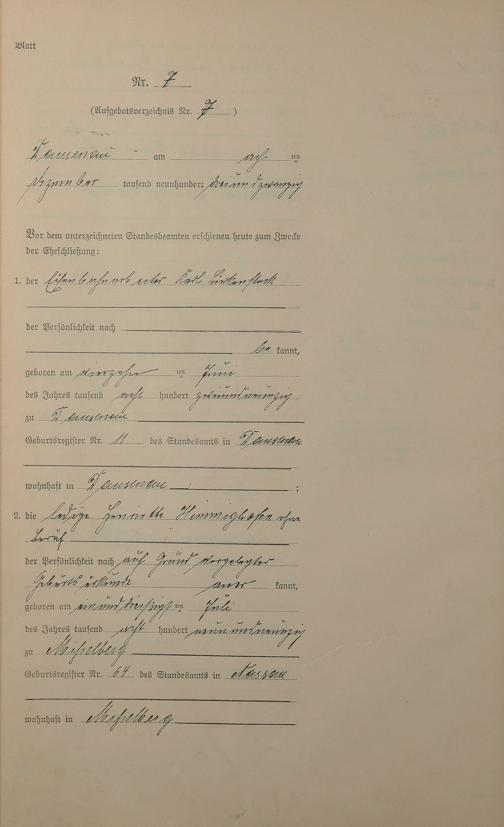 Blatt
Nr. 7
(Aufgebotsverzeichnis Nr. 7)
Dausenau am acht ten
Dezember tausend neunhundert dreiundzwanzig
Vor dem unterzeichneten Standesbeamten erschienen heute zum Zwecke
der Eheschließung:
1. der Eisenbahnarbeiter Karl Birkenstock
der Persönlichkeit nach
be kannt,
geboren am vierzehn ten Juni
des Jahres tausend acht hundert zweiundneunzig
zu Dausenau
Geburtsregister Nr. 11 des Standesamts in Dausenau
wohnhaft in Dausenau ;
2. die ledige Henriette Himmighofen ohne
Beruf
der Persönlichkeit nach auf Grund vorgelegter
Geburtsurkunde aner kannt,
geboren am einunddreißigs ten Juli
des Jahres tausend acht hundert neunundneunzig
zu Misselberg
Geburtsregister Nr. 64 des Standesamts in Nassau
wohnhaft in Misselberg